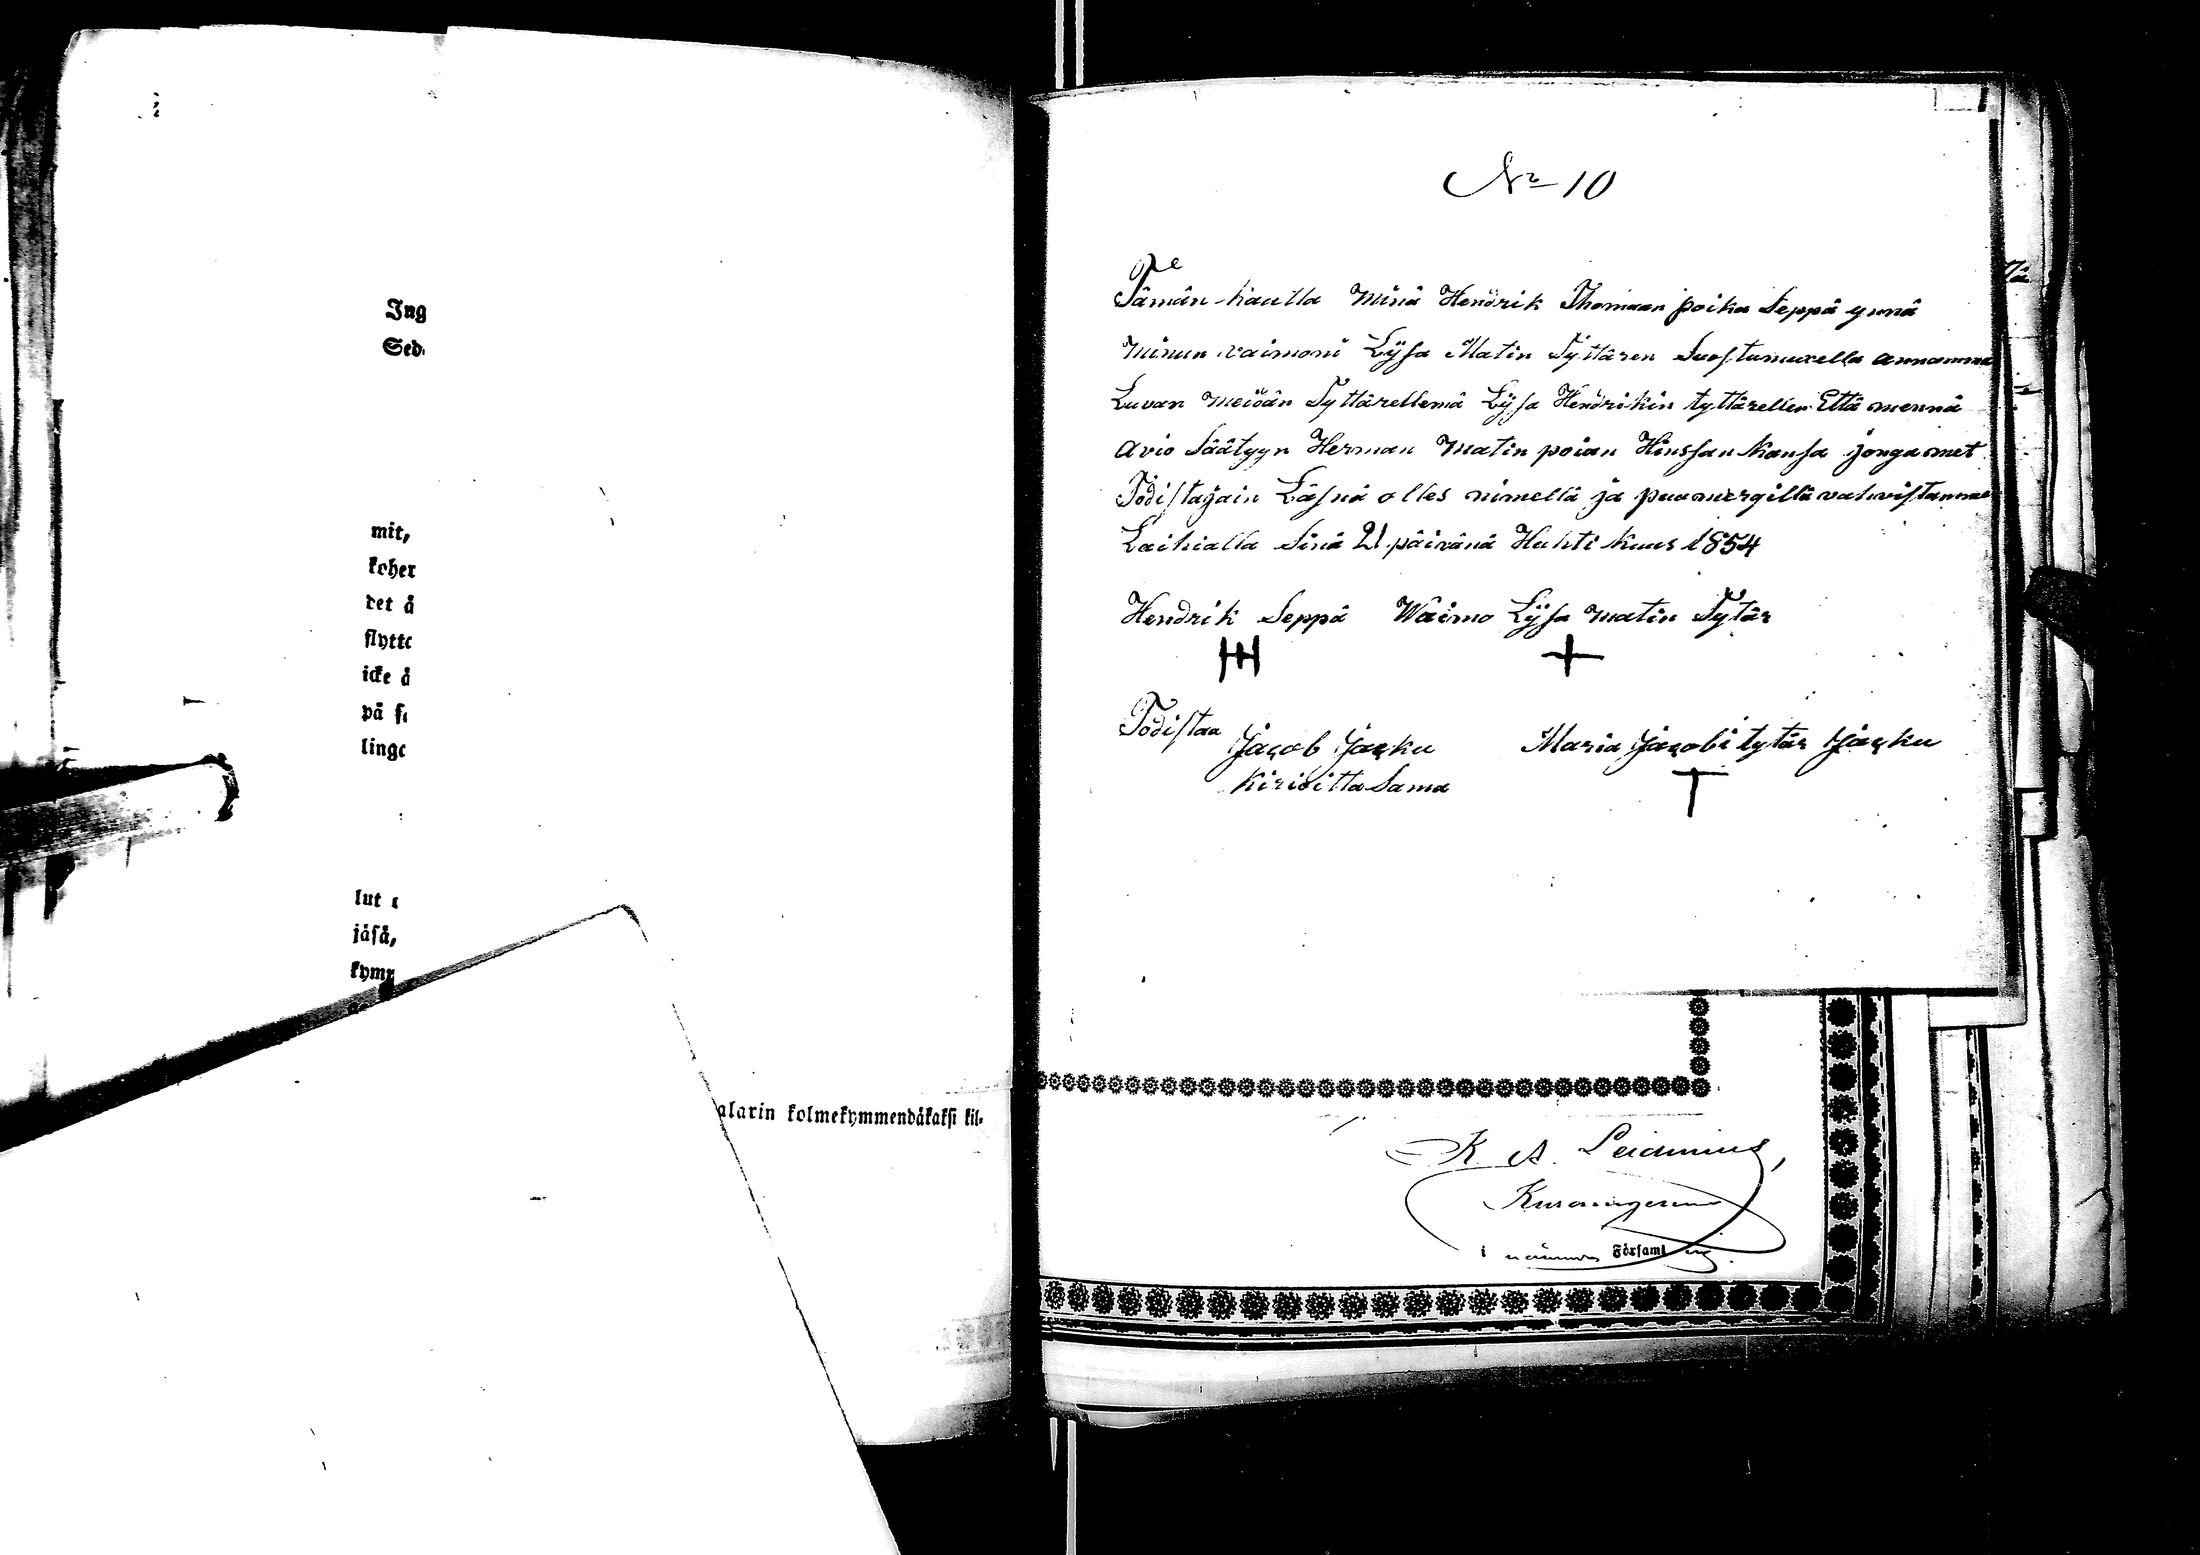 Ing
Sed.
mit,
koher
det å
flytte
icke å
på f
linge
lut
jåså,
kym
alarin kolmekymmendåkaksi kil-
No 10
Tämän kautta Minä Hendrik Thomaan poika Seppä ynnä
Minun vaimoni Lÿsa Matin Tyttären Suostumuxella annamma
Luvan meidän Tyttärellemä Lÿsa Hendrikin tyttärellen Että mennä
avio Säätyyn Herman Matin poian Hinssan Kansa jonga met
Todistajain Läsnä olles nimellä ja puumergillä vahvistamme
Laihialla Sinä 21 päivänä Huhti Kuus 1854
Hendrik Seppä Waimo Lÿsa Matin Tytär
Todistaa Jacob Jacku Maria Jacobi tytär Jacku
Kirioitta Sama
K. A. Leidenius,
i Församl